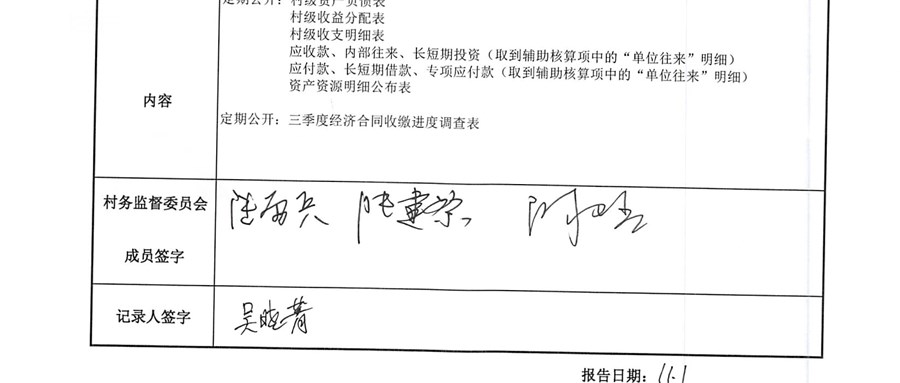 定期公开：村级资产负债表
村级收益分配表
村级收支明细表
应收款、内部往来、长短期投资（取到辅助核算项中的“单位往来”明细）
应付款、长短期借款、专项应付款（取到辅助核算项中的“单位往来”明细）
资产资源明细公布表
内容
定期公开：三季度经济合同收缴进度调查表
村务监督委员会
成员签字
记录人签字 吴晓菁
报告日期：11.1